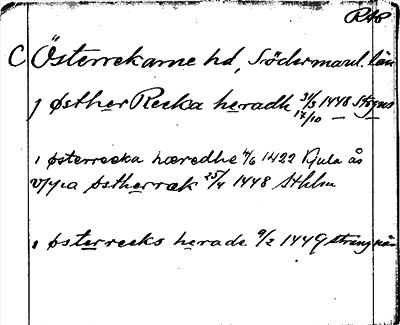 RAP
C Österrekarne hd, Södermanl. län
j østherRecka heradh 31/3 1448
17/10
i østerrecka hæredhe 4/6 1422 Kjula ås
vppa østherræk 25/4 1448 Sthlm
i østerrecks herade 9/2 1449 Strängnäs